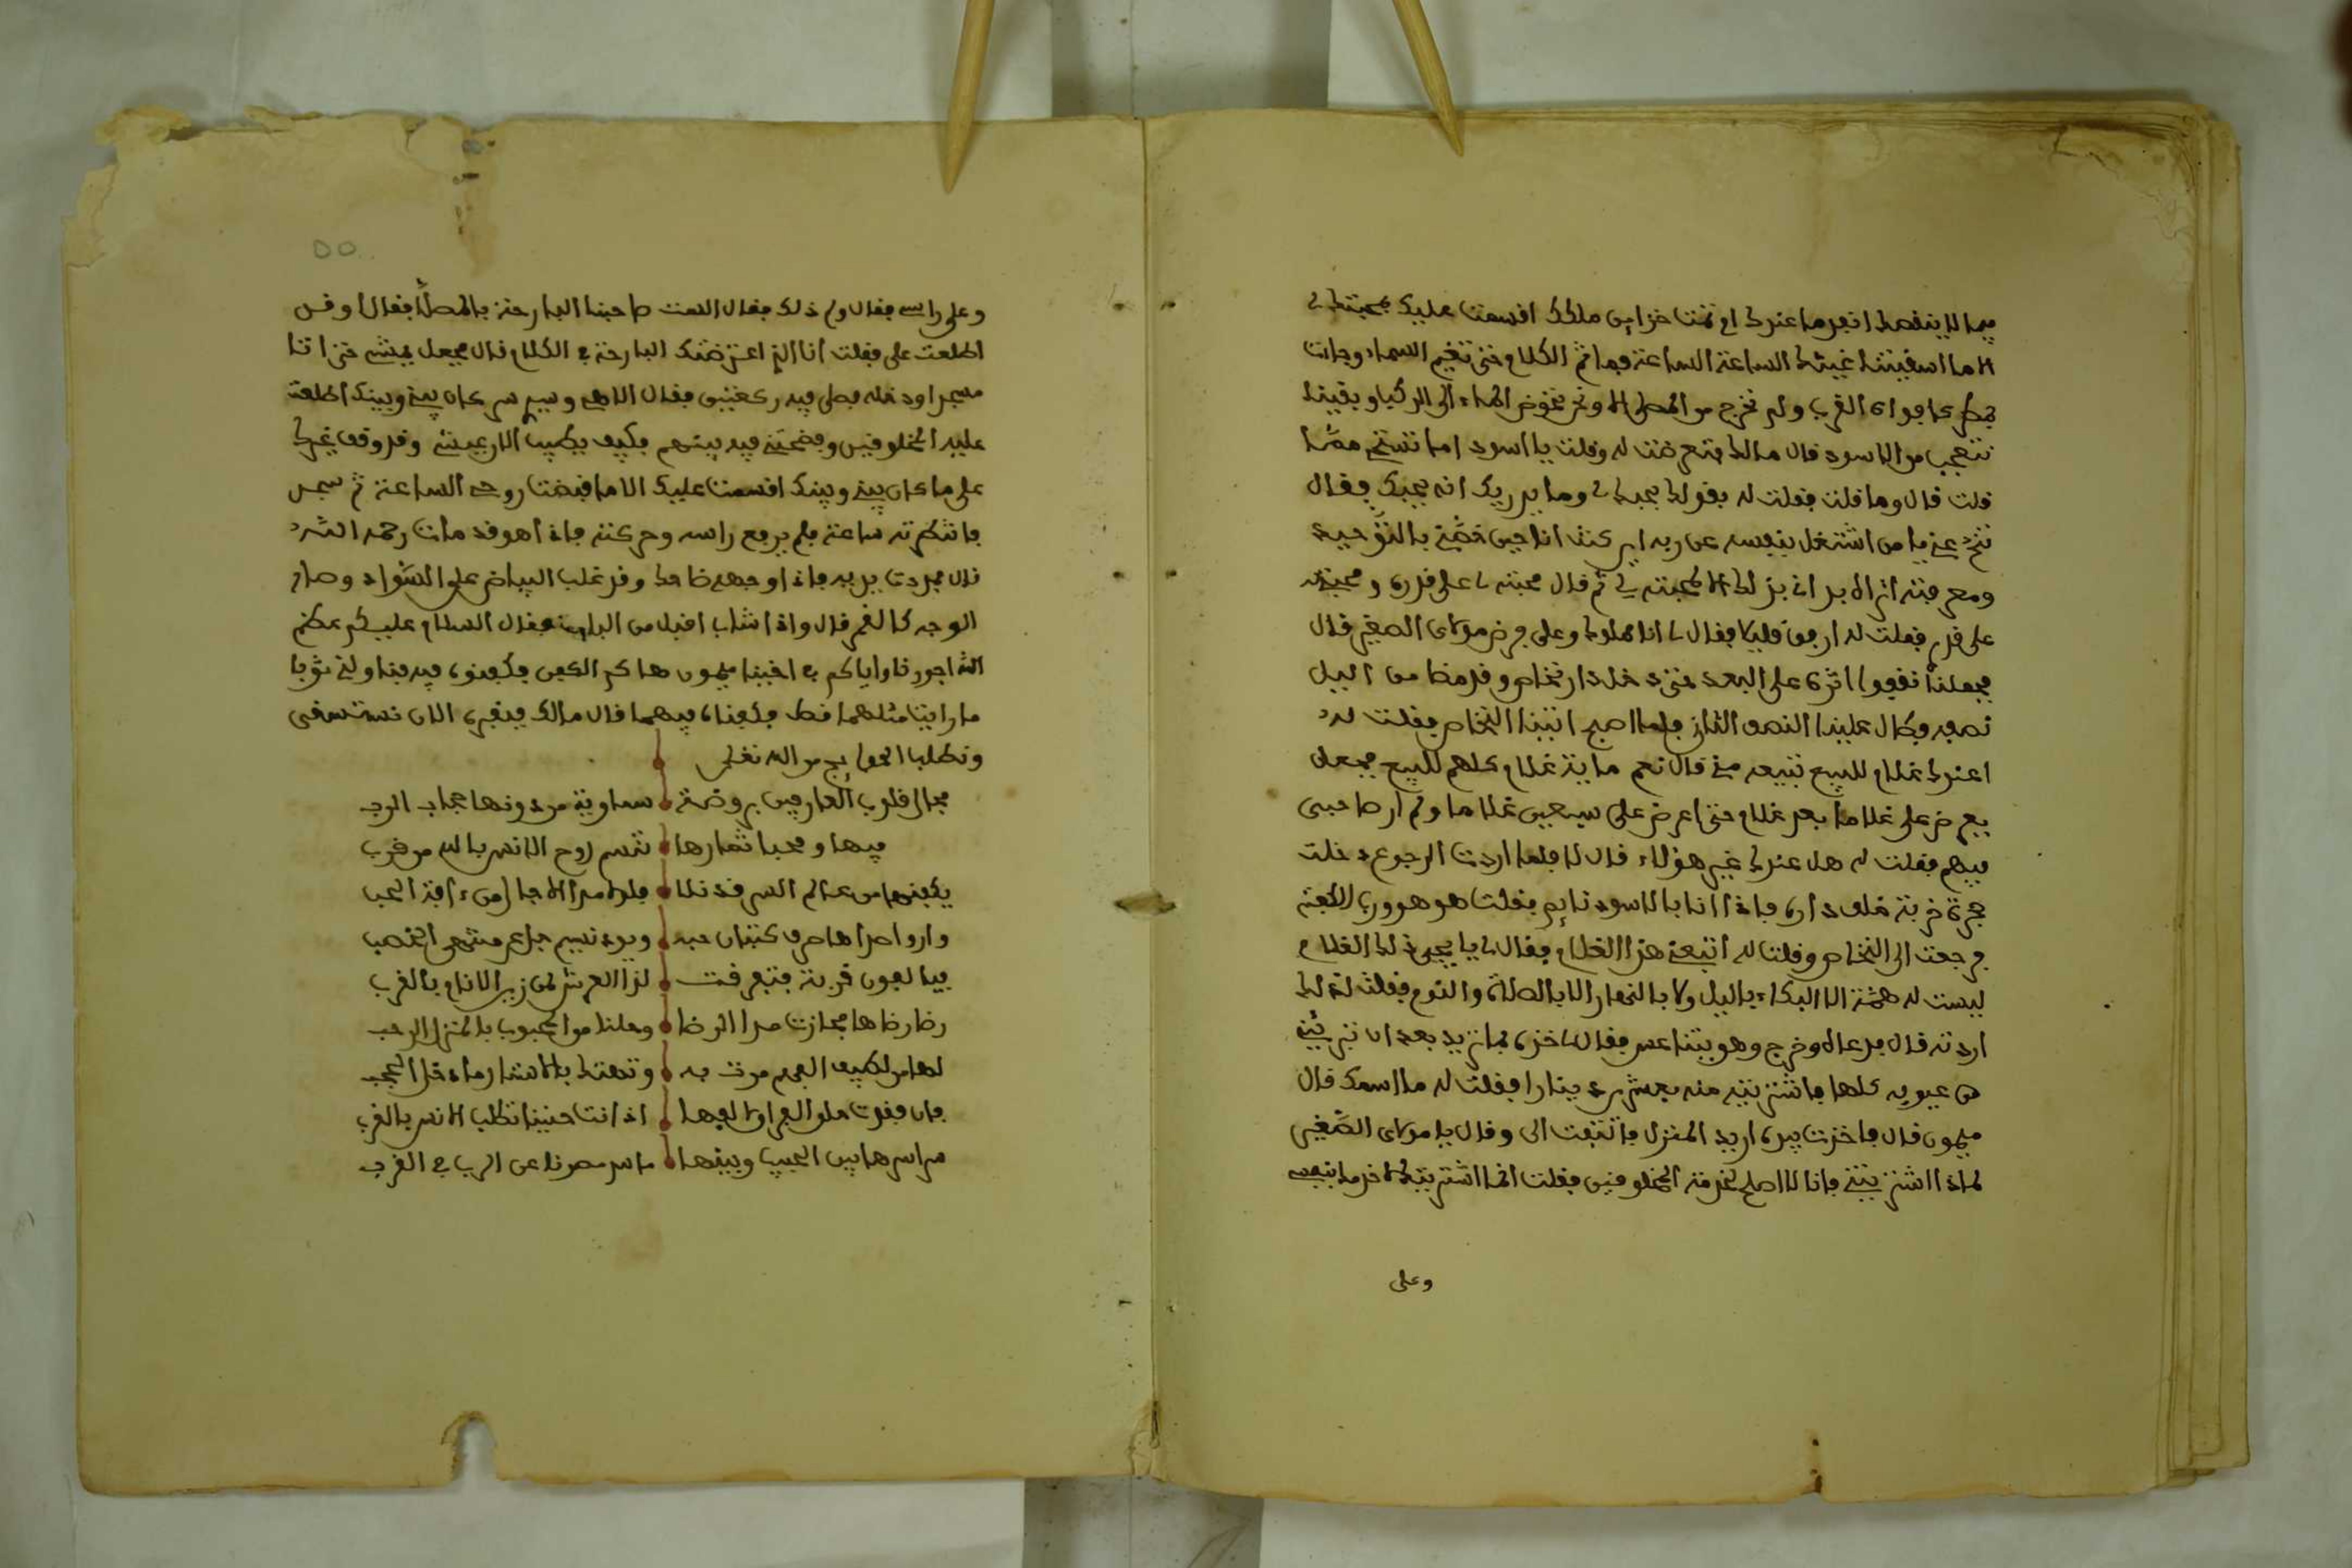 فيما لا ينقصك انفد ما عندك ام نفدت خزاين ملكك اقسمت عليك بمحبتك لي
الا ما اسقيتنا غيثك الساعة الساعة فما تم الكلام حتى تغيم السماء وجاءت
بمطر كافواه القرب ولم نخرج من المصلى الا ونحن نخوض الماء الى الركب وبقينا
نتعجب من الاسود قال مالك فتعرضت له وقلت يا اسود اما تستحي مما
قلت قال وما قلت فقلت له بقولك بحبك لي وما يدريك انه يحبك فقال
تنح عني يا من اشتغل بنفسه عن ربه اين كنت انا حين خصني بالتوحيد
ومعرفته اتراه بداني بذلك الا لمحبته لي ثم قال محبته لي على قدره ومحبتي له
على قدري فقلت له ارفق قليلا فقال لي انا مملوك وعلي فرض مولاي الصغير قال
فجعلنا نقفوا اثره على البعد حتى دخل دار نخاس وقد مضا من اليل
نصفه فطال علينا النصف الثاني فلما اصبح اتينا النخاس فقلت له
اعندك غلام للبيع تبيعه مني قال نعم ماية غلام كلهم للبيع فجعل
يعرض علي غلاما بعد غلام حتى اعرض علي سبعين غلاما ولم ار صاحبي
فيهم فقلت له هل عندك غير هؤلاء قال لا فلما اردت الرجوع دخلت
حجرة خربة خلف داره فاذا انا بالاسود نايم فقلت هو هو ورب الكعبة
فرجعت الى النخاس وقلت له اتبيعني هذا الغلام فقال لي يا يحيى ذلك الغلام
ليست له همة الا البكاء باليل ولا بالنهار الا بالصلاة والنوم فقلت لذلك
اردته قال فدعاه وخرج وهو يتناعس فقال لي خذه بما تريد بعد ان تبريني
من عيوبه كلها فاشتريته منه بعشرين دينارا فقلت له ما اسمك قال
ميمون قال فاخذت بيده اريد المنزل فالتفت الي وقال يا مولاي الصغير
لماذا اشتريتني وانا لا اصلح لخدمة المخلوقين فقلت انما اشتريتك لاخدمك بنفسي
وعلى
وعلى راسي فقال ولم ذلك فقال الست صاحبنا البارحة بالمصلى فقال اوقد
اطلعت علي فقلت انا الذي اعترضتك البارحة في الكلام قال فجعل يمشي حتى اتا
مسجدا ودخله فصلى فيه ركعتين فقال الاهي وسيدي سر كان بيني وبينك اطلعت
عليه المخلوقين وفضحتني فيه بينهم فكيف يطيب الان عيشي وقد وقف غيرك
على ما كان بيني وبينك اقسمت عليك الا ما قبضت روحي الساعة ثم سجد
فانتظرته ساعة فلم يرفع راسه وحركته فاذا هو قد مات رحمه الله
قال فمددت يديه فاذا وجهه ضاحك وقد غلب البياض على السواد وصار
الوجه كالقمر قال واذا شاب اقبل من الباب فقال السلام عليكم عظم
الله اجورنا واياكم في اخينا ميمون هاكم الكفن فكفنوه فيه فناولني ثوبا
ما راينا مثلهما قط فكفناه فيهما قال مالك فبقبره الان نستسقى
ونطلب الحوايج من الله تعلى
مجال قلوب العارفين بروضة سماوية من دونها حجاب الرب
فيها ومجنا ثمارها تنسم روح الانس بالله من قرب
يكنها من عالم السر قد تلا فلولا مدا الاجال من
وارواصداها صرف كتبان حبه وبرد نسيم جل عن منتهى الخصب
فيالعون قربة فتعرفت لذا العرش لمن زين الانام بالقرب
رضا رضاها فجازت مدا الرضا وحلت من المحبوب بالمنزل الرحب
لها من لطيف العزم مرت به وتهتك بالاستار ماداخل الحجب
فان فقدت خلو الفؤاد لفها اذا نت حنينا تطلب الانس بالقرب
سراسرها بين الحبيب وبينها ما سر مصرنا عن الرب في القرب